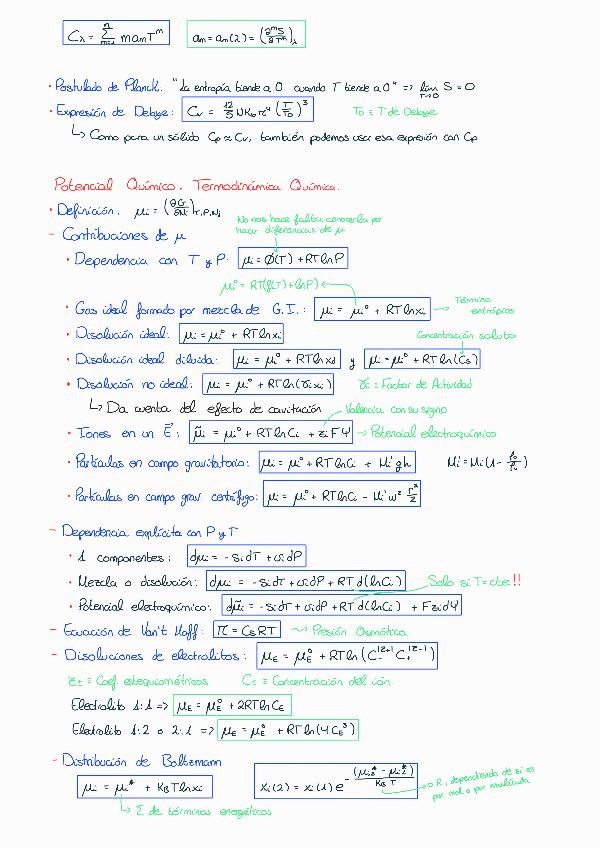 Cλ = Σ(m=1→n) m aₘ Tᵐ    aₘ = aₘ(λ) = (∂ᵐS/∂Tᵐ)λ
· Postulado de Planck. "La entropía tiende a 0 cuando T tiende a 0" => lim T→0 S = 0
· Expresión de Debye: Cv = 12/5 N K_B π⁴ (T/T_D)³    T_D ≡ T de Debye
↳ Como para un sólido Cp ≈ Cv, también podemos usar esa expresión con Cp
Potencial Químico. Termodinámica Química.
· Definición. μi = (∂G/∂Ni)T,P,Nj
No nos hace faltar conocerla por
hacer diferencias de μ
- Contribuciones de μ
· Dependencia con T y P: μi = Ø(T) + RT ln P
μi° = RT(Ø(T) + ln P)
· Gas ideal formado por mezcla de G.I.: μi = μi° + RT ln xi → Término
entrópico
· Disolución ideal: μi = μi° + RT ln xi
Concentración soluto
· Disolución ideal diluida: μi = μi° + RT ln xd y μi = μi° + RT ln(Cs)
· Disolución no ideal: μi = μi° + RT ln(γi xi)    γi ≡ Factor de Actividad
↳ Da cuenta del efecto de cavitación    Valencia con su signo
· Iones en un E⃗: μ̃i = μi° + RT ln Ci + zi F Ψ → Potencial electroquímico
· Partículas en campo gravitatorio: μi = μi° + RT ln Ci + Mi' g h    Mi' = Mi(1 - ρ₀/ρi)
· Partículas en campo grav. centrífugo: μi = μi° + RT ln Ci - Mi' ω² r²/2
- Dependencia explícita con P y T
· 1 componentes: dμi = -si dT + vi dP
· Mezcla o disolución: dμi = -si dT + vi dP + RT d(ln Ci)    Solo si T = cte!!
· Potencial electroquímico: dμ̃i = -si dT + vi dP + RT d(ln Ci) + F zi dΨ
- Ecuación de Van't Hoff: π = Cs RT → Presión Osmótica
- Disoluciones de electrolitos: μE = μE° + RT ln(C₋^|z+| C₊^|z-|)
z± ≡ Coef. estequiométricos    C± ≡ Concentración del ión
Electrolito 1:1 => μE = μE° + 2RT ln CE
Electrolito 1:2 o 2:1 => μE = μE° + RT ln(4CE³)
- Distribución de Boltzmann
μi = μi* + K_B T ln xi    xi(2) = xi(1) e^-((μi2* - μi1*)/(K_B T)) → o R, dependiendo de si es
por mol o por molécula
↳ Σ de términos energéticos